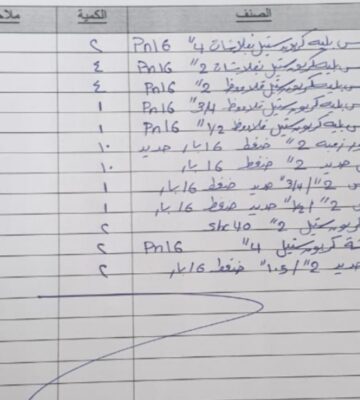 الصنف الكمية
س بليه كربون ستيل بفلانشات 4" Pn16 ٢
بليه كربون ستيل بفلانشات 2" Pn16 ٤
بليه كربون ستيل قلاووظ 2" Pn16 ٤
س بليه كربون ستيل قلاووظ 3/4" Pn16 ١
س بليه كربون ستيل قلاووظ 1/2" Pn16 ١
2" ضغط 16 بار حديد ١٠
حديد 2" ضغط 16 بار ١٠
س 2"/3/4" حديد ضغط 16 بار ١
س 2"/1/2" حديد ضغط 16 بار ١
كربون ستيل 2" shc 40 ٢
ـة كربون ستيل 4" Pn16 ٢
حديد 2"/1.5" ضغط 16 بار ٢